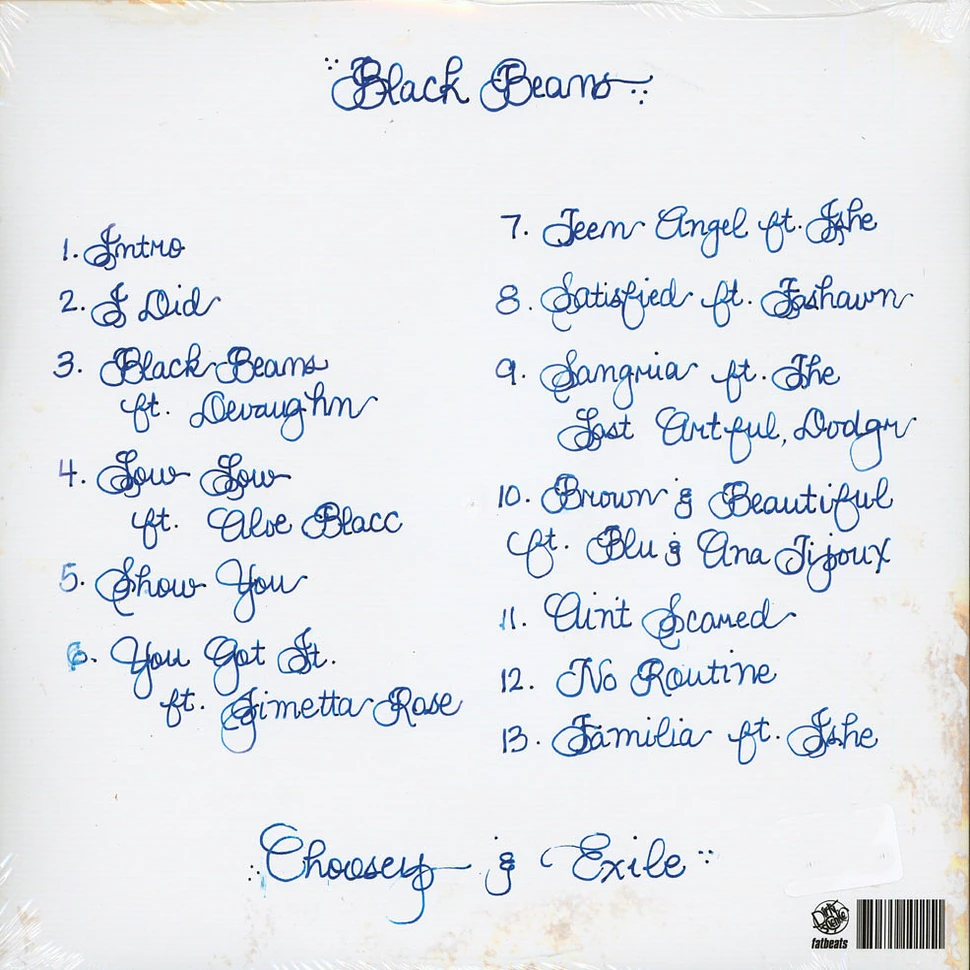 Black Beans
1. Intro
2. I Did
3. Black Beans
ft. Devaughn
4. Low Low
ft. Aloe Blacc
5. Show You
6. You Got It.
ft. Jimetta Rose
7. Teen Angel ft. Ishe
8. Satisfied ft. Fashawn
9. Sangria ft. The
Last Artful, Dodgr
10. Brown & Beautiful
ft. Blu & Ana Tijoux
11. Ain't Scared
12. No Routine
13. Familia ft. Ishe
Choosey & Exile
Dirty Science
fatbeats